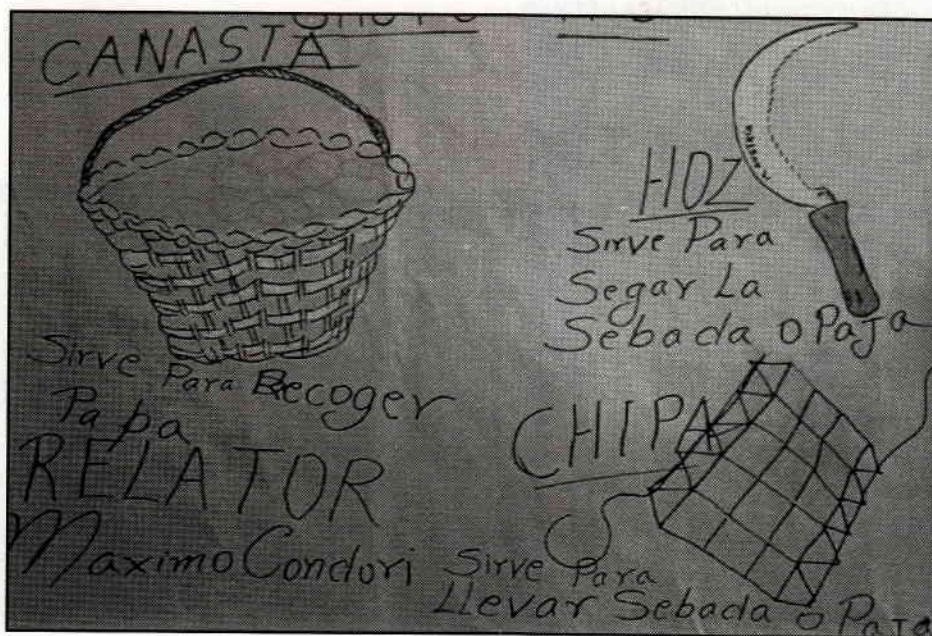 CANASTA
Sirve Para Recoger
Papa
RELATOR
Maximo Condori
HOZ
Sirve Para
Segar La
Sebada o Paja
CHIPA
Sirve Para
LLevar Sebada o Paja